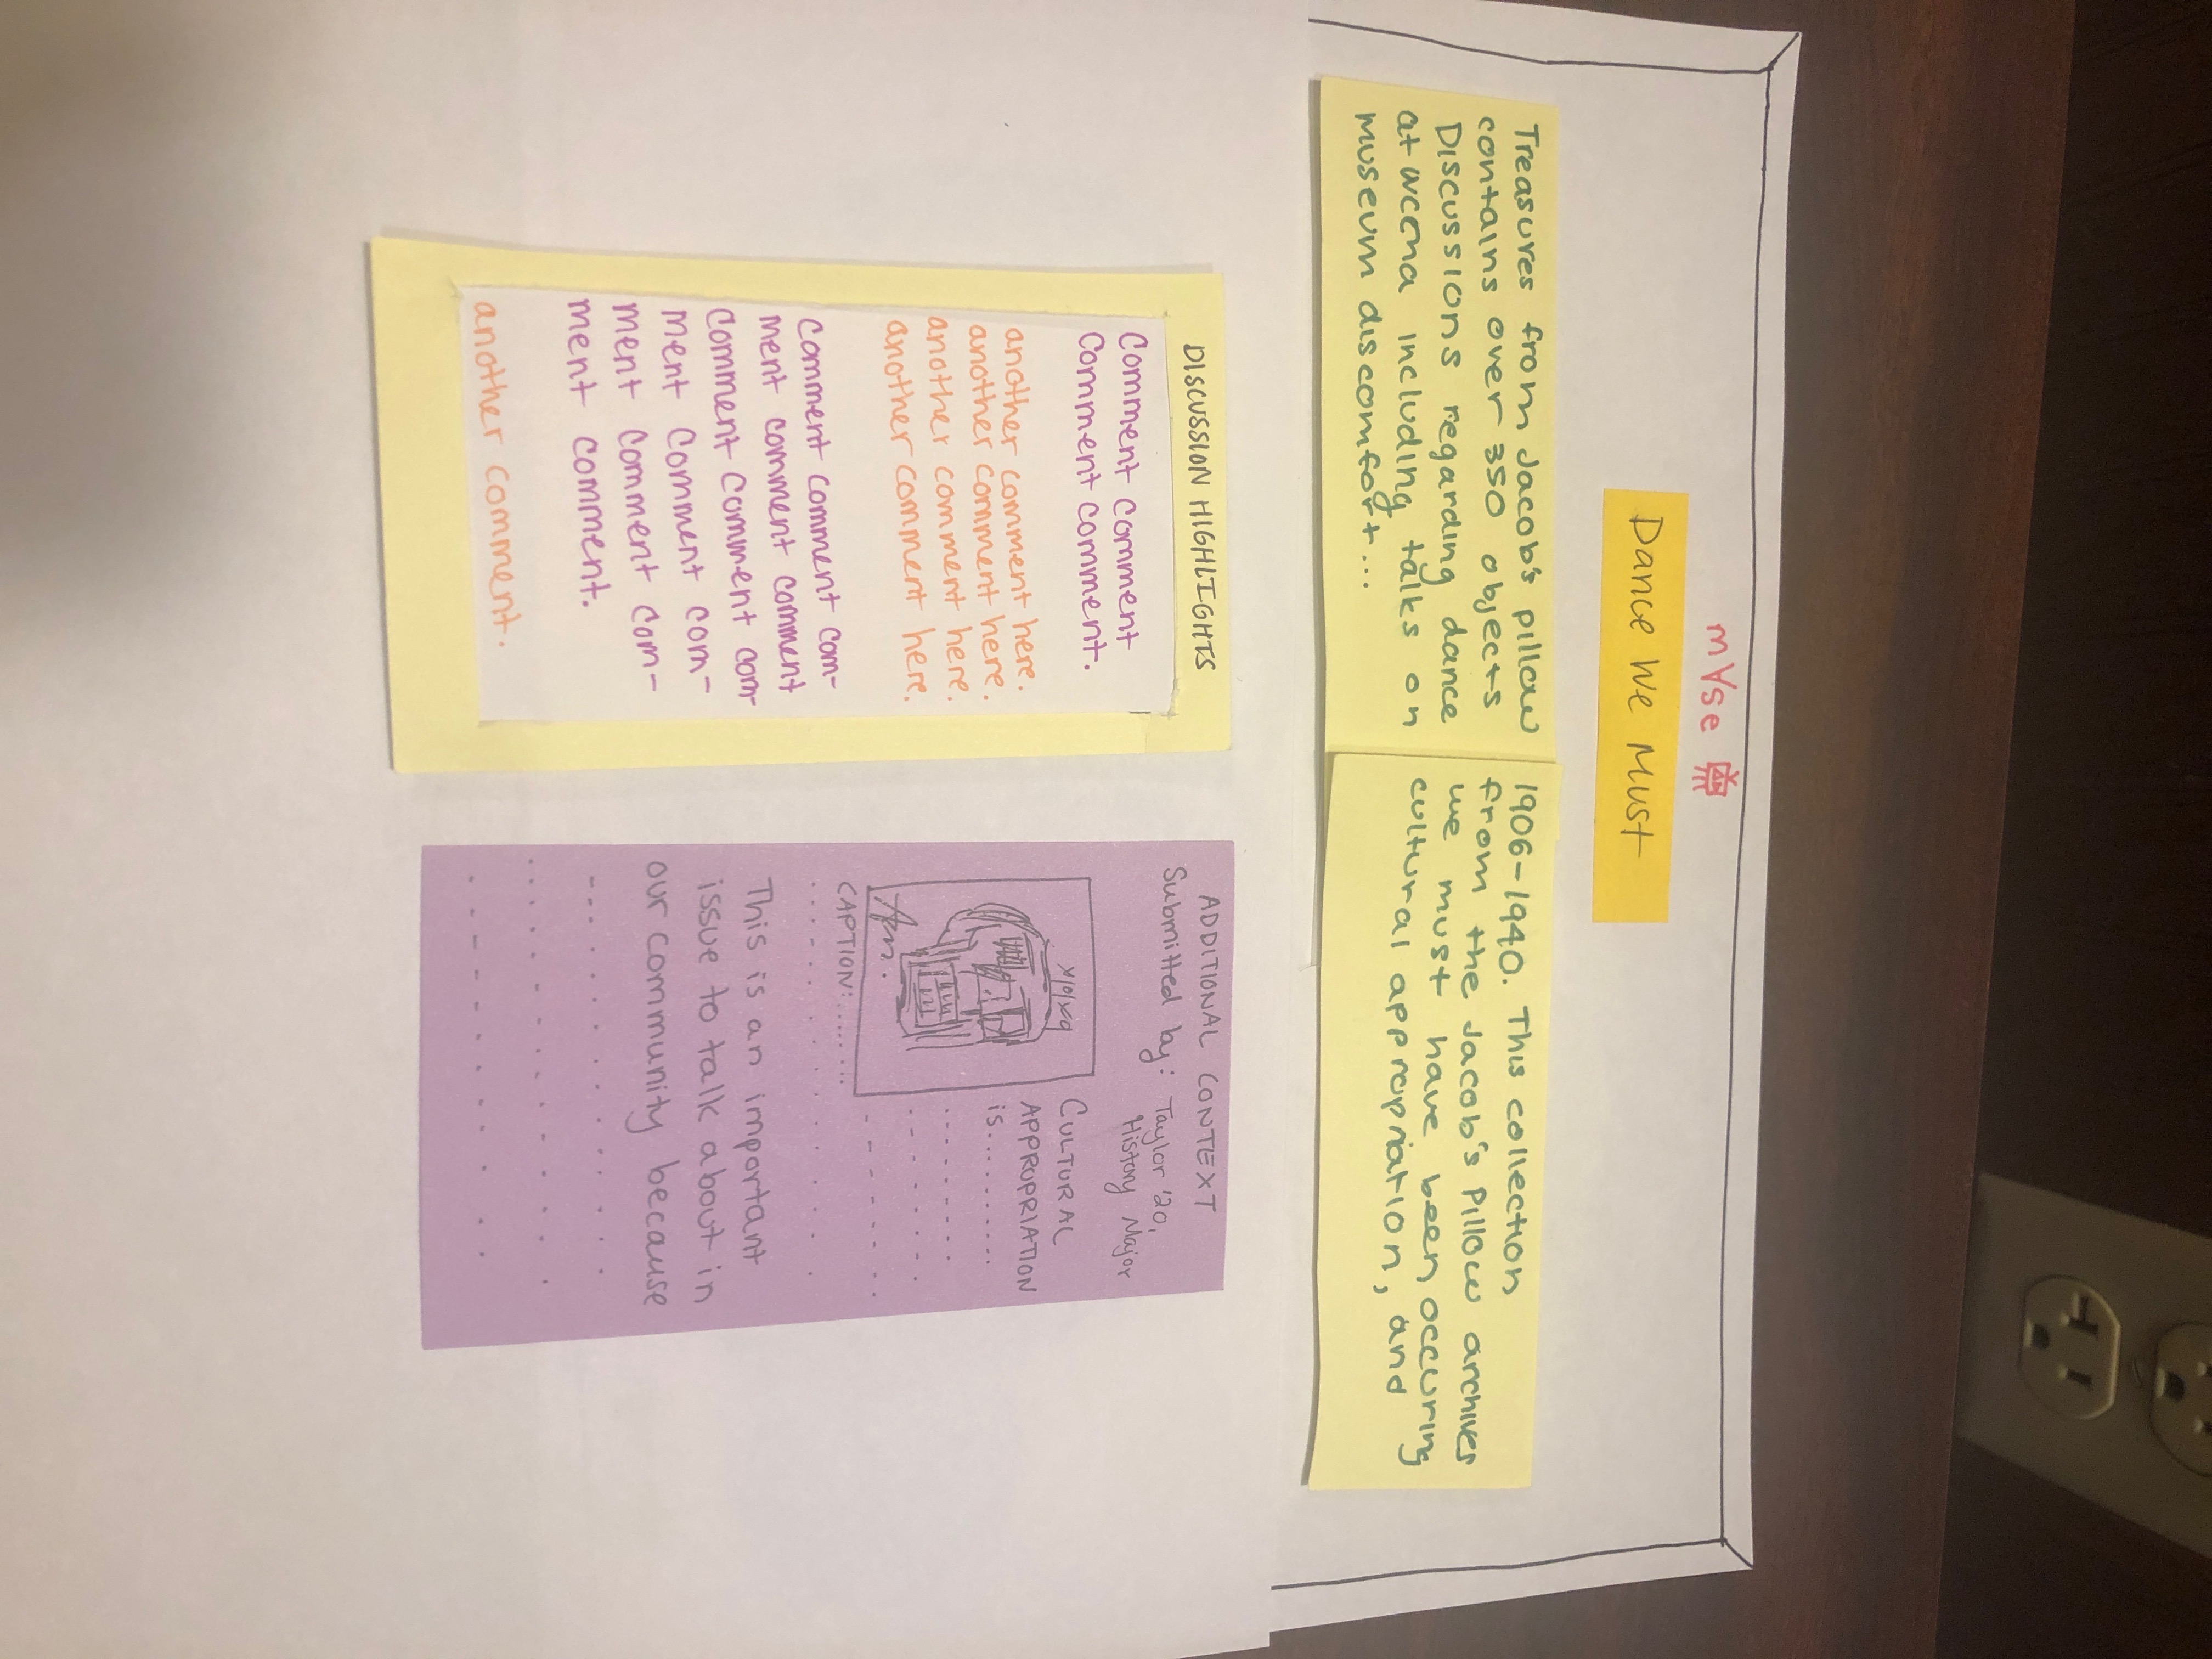 m∀se
Dance We Must
Treasures from Jacob's pillow
contains over 350 objects
Discussions regarding dance
at WCCMA including talks on
museum discomfort...
1906-1940. This collection
from the Jacob's Pillow archives
we must have been occuring
cultural appropriation, and
DISCUSSION HIGHLIGHTS
Comment comment
Comment comment.
another comment here.
another comment here.
another comment here.
another comment here.
Comment comment com-
ment comment comment
Comment comment com-
ment comment com-
ment comment com-
ment comment.
another comment.
ADDITIONAL CONTEXT
Submitted by: Taylor '20,
History Major
CULTURAL
APPROPRIATION
is.........
CAPTION:......
This is an important
issue to talk about in
our community because